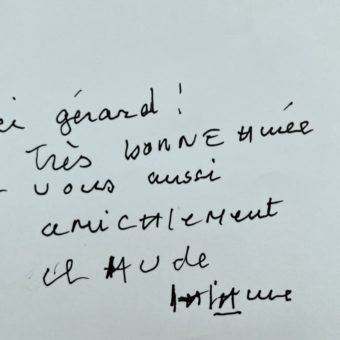 ci gérard !
Très bonne année
vous aussi
amicalement
claude